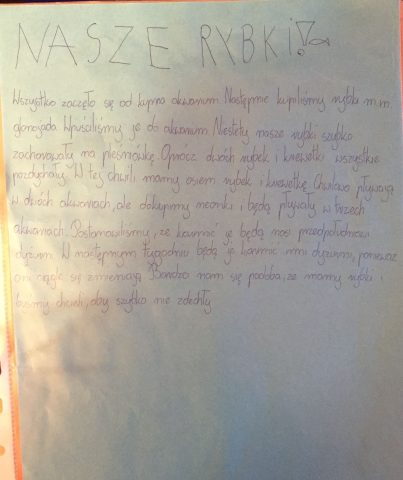 NASZE RYBKI!
Wszystko zaczęło się od kupna akwarium. Następnie kupiliśmy rybki m.in.
glonojada. Wpuściliśmy je do akwarium. Niestety nasze rybki szybko
zachorowały na pleśniawkę. Oprócz dwóch rybek i krewetki wszystkie
pozdychały. W tej chwili mamy osiem rybek i krewetkę. Chwilowo pływają
w dwóch akwariach, ale dokupimy neonki i będą pływały w trzech
akwariach. Postanowiliśmy, że karmić je będą nasi przedpołudniowi
dyżurni. W następnym tygodniu będą je karmić inni dyżurni, ponieważ
oni ciągle się zmieniają. Bardzo nam się podoba, że mamy rybki i
byśmy chcieli, aby szybko nie zdechły